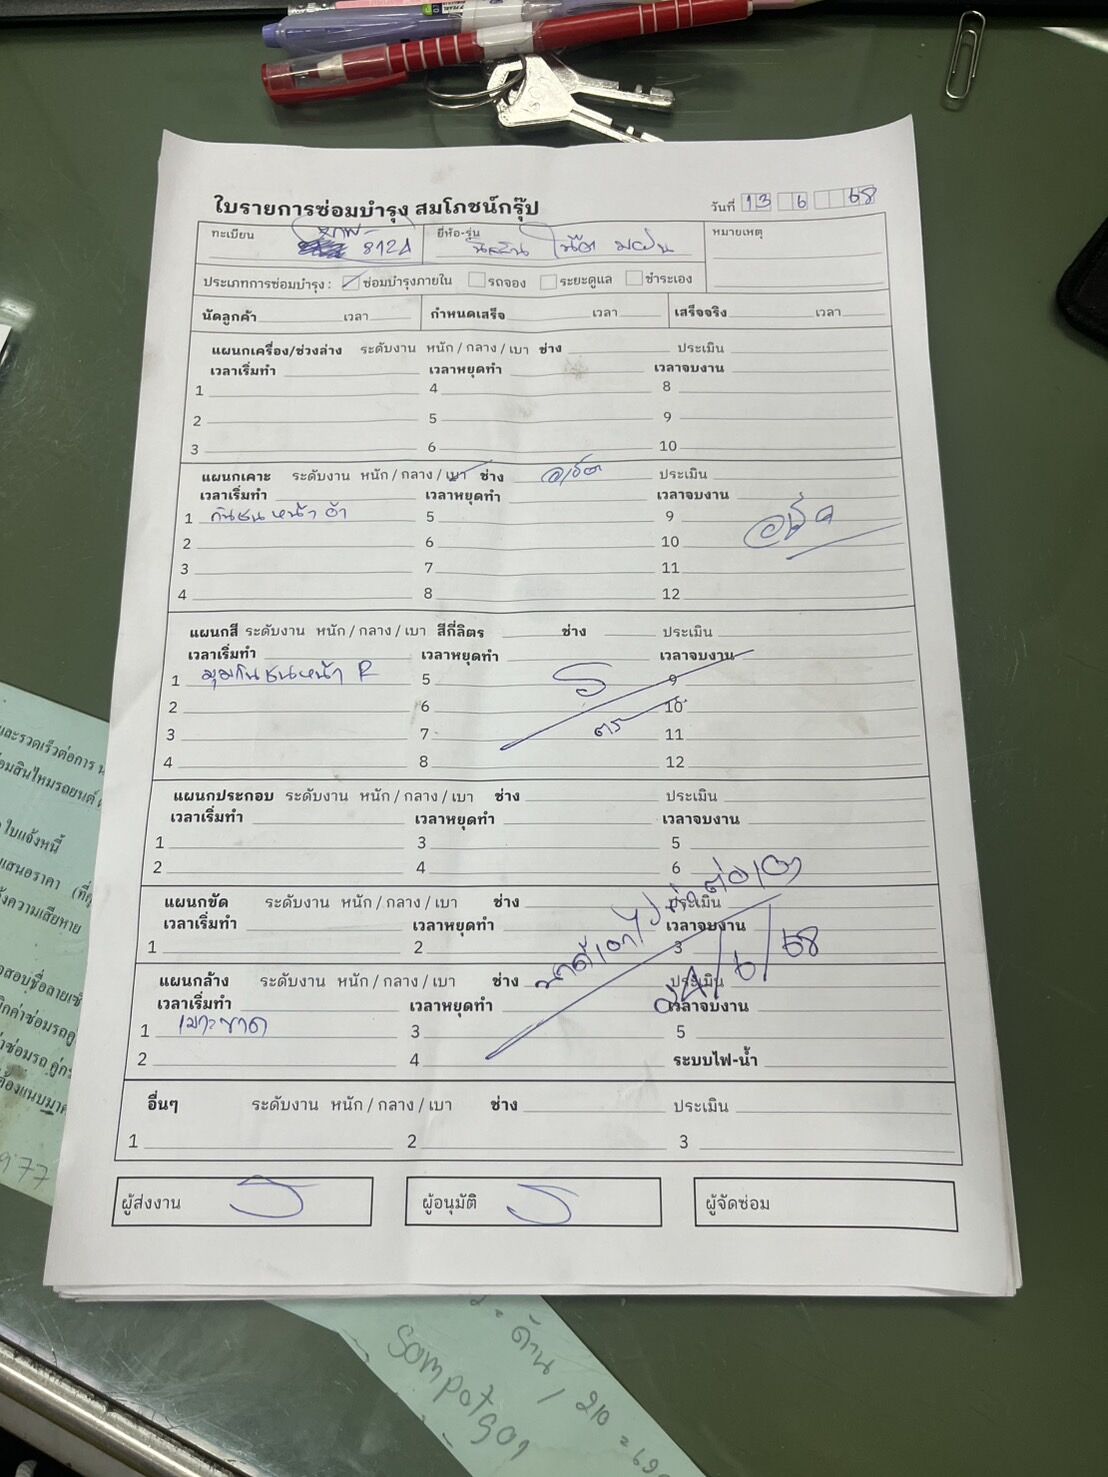 ใบรายการซ่อมบำรุง สมโภชน์กรุ๊ป
วันที่ 13 6 68
ทะเบียน 8124
ยี่ห้อ-รุ่น นิสสัน
หมายเหตุ
ประเภทการซ่อมบำรุง : ซ่อมบำรุงภายใน รถจอง ระยะดูแล ชำระเอง
นัดลูกค้า เวลา กำหนดเสร็จ เวลา เสร็จจริง เวลา
แผนกเครื่อง/ช่วงล่าง ระดับงาน หนัก / กลาง / เบา ช่าง ประเมิน
เวลาเริ่มทำ เวลาหยุดทำ เวลาจบงาน
1 4 8
2 5 9
3 6 10
แผนกเคาะ ระดับงาน หนัก / กลาง / เบา ช่าง ประเมิน
เวลาเริ่มทำ เวลาหยุดทำ เวลาจบงาน
1 กันชนหน้า อ้า 5 9
2 6 10
3 7 11
4 8 12
แผนกสี ระดับงาน หนัก / กลาง / เบา สีกี่ลิตร ช่าง ประเมิน
เวลาเริ่มทำ เวลาหยุดทำ เวลาจบงาน
1 มุมกันชนหน้า R 5 9
2 6 10
3 7 11
4 8 12
แผนกประกอบ ระดับงาน หนัก / กลาง / เบา ช่าง ประเมิน
เวลาเริ่มทำ เวลาหยุดทำ เวลาจบงาน
1 3 5
2 4 6
แผนกขัด ระดับงาน หนัก / กลาง / เบา ช่าง ประเมิน
เวลาเริ่มทำ เวลาหยุดทำ เวลาจบงาน
1 2 3
24/6/68
แผนกล้าง ระดับงาน หนัก / กลาง / เบา ช่าง ประเมิน
เวลาเริ่มทำ เวลาหยุดทำ เวลาจบงาน
1 เบาะขาด 3 5
2 4 ระบบไฟ-น้ำ
อื่นๆ ระดับงาน หนัก / กลาง / เบา ช่าง ประเมิน
1 2 3
ผู้ส่งงาน ผู้อนุมัติ ผู้จัดซ่อม
และรวดเร็วต่อการ
ใบแจ้งหนี้
เสนอราคา
ความเสียหาย
9.77
ด้าน / 210 =